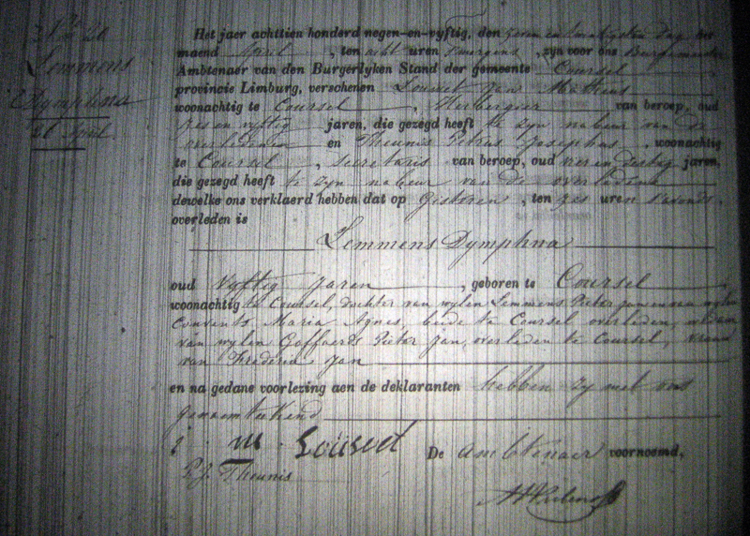 N° 20
Lemmens
Dymphna
26 April
Het jaer achttien honderd negen-en-vyftig, den zeven en twintigsten dag der
maend April, ten acht uren smorgens, zyn voor ons Burgemeester
Ambtenaer van den Burgerlyken Stand der gemeente Coursel
provincie Limburg, verschenen Louwet Jan Mathias
woonachtig te Coursel, Herbergier van beroep, oud
zes en vyftig jaren, die gezegd heeft te zyn nabuer van de
overledene en Theunis Petrus Josephus, woonachtig
te Coursel, Secretaris van beroep, oud vier en dertig jaren,
die gezegd heeft te zyn nabuer van de overledene
dewelke ons verklaerd hebben dat op Gisteren, ten zes uren s'avonds
overleden is
Lemmens Dymphna
oud vyftig Jaren, geboren te Coursel
woonachtig te Coursel, dochter van wylen Lemmens Pieter Jan en van wylen
Convents Maria Agnes, beide te Coursel overleden, weduwe
van wylen Goffaerds Pieter Jan, overleden te Coursel, vrouw
van Frederix Jan
en na gedane voorlezing aen de deklaranten hebben zy met ons
genaemteekend
j m Louwet De ambtenaer voornoemd,
P. J. Theunis